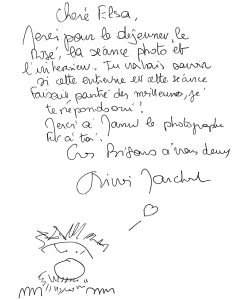 Chère Elsa,
Merci pour le déjeuner, le
Rosé, la séance photo et
l'interview. Tu voulais savoir
si cette entrevue et cette séance
faisait partie des meilleures, je
te réponds oui!
Merci à le photographe
Et à toi.
Gros Bisous à vous deux